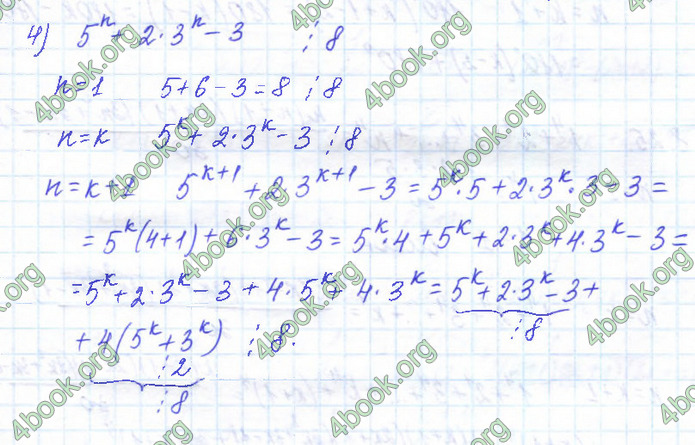 4) 5ⁿ + 2·3ⁿ - 3 ⋮ 8
n=1 5+6-3=8 ⋮ 8
n=k 5ᵏ + 2·3ᵏ - 3 ⋮ 8
n=k+1 5ᵏ⁺¹ + 2·3ᵏ⁺¹ - 3 = 5ᵏ·5 + 2·3ᵏ·3 - 3 =
= 5ᵏ(4+1) + 6·3ᵏ - 3 = 5ᵏ·4 + 5ᵏ + 2·3ᵏ + 4·3ᵏ - 3 =
= 5ᵏ + 2·3ᵏ - 3 + 4·5ᵏ + 4·3ᵏ = 5ᵏ + 2·3ᵏ - 3 +
⋮ 8
+ 4(5ᵏ + 3ᵏ) ⋮ 8.
⋮ 2
⋮ 8
4book.org